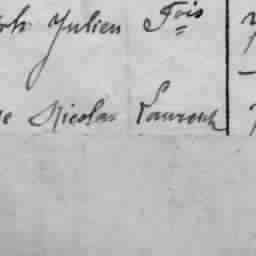 Julien Fois
Nicolas Laurent